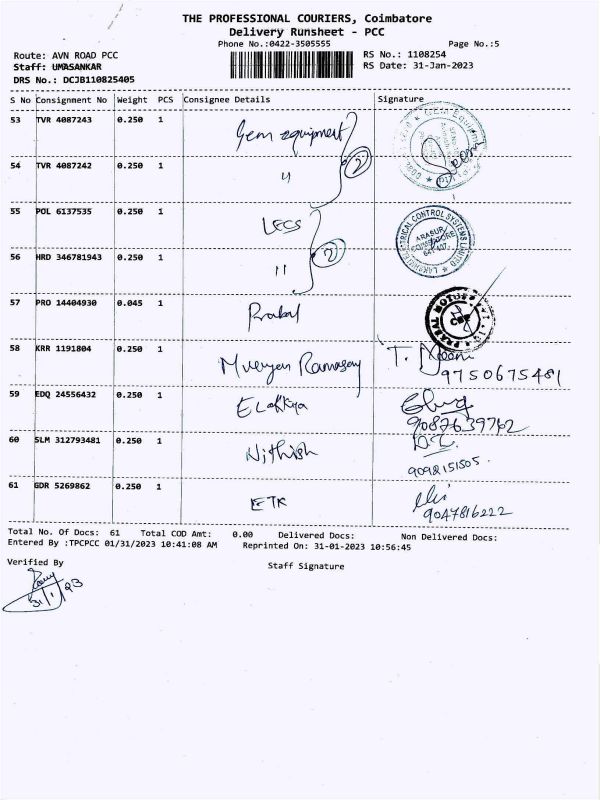 THE PROFESSIONAL COURIERS, Coimbatore
Delivery Runsheet - PCC
Phone No.:0422-3505555 Page No.:5
Route: AVN ROAD PCC RS No.: 1108254
Staff: UMASANKAR RS Date: 31-Jan-2023
DRS No.: DCJB110825405
S No Consignment No Weight PCS Consignee Details Signature
53 TVR 4087243 0.250 1 Gem equipment
54 TVR 4087242 0.250 1 " 2
55 POL 6137535 0.250 1 LECS
56 HRD 346781943 0.250 1 " 2
ARASUR
COIMBATORE
641 407
57 PRO 14404930 0.045 1 Prabal
58 KRR 1191804 0.250 1
9750675481
59 EDQ 24556432 0.250 1 Elakkiya
9087639762
60 SLM 312793481 0.250 1 Nithish
9092151505.
61 GDR 5269862 0.250 1 ETK
9047816222
Total No. Of Docs: 61 Total COD Amt: 0.00 Delivered Docs: Non Delivered Docs:
Entered By :TPCPCC 01/31/2023 10:41:08 AM Reprinted On: 31-01-2023 10:56:45
Verified By Staff Signature
31/1/23